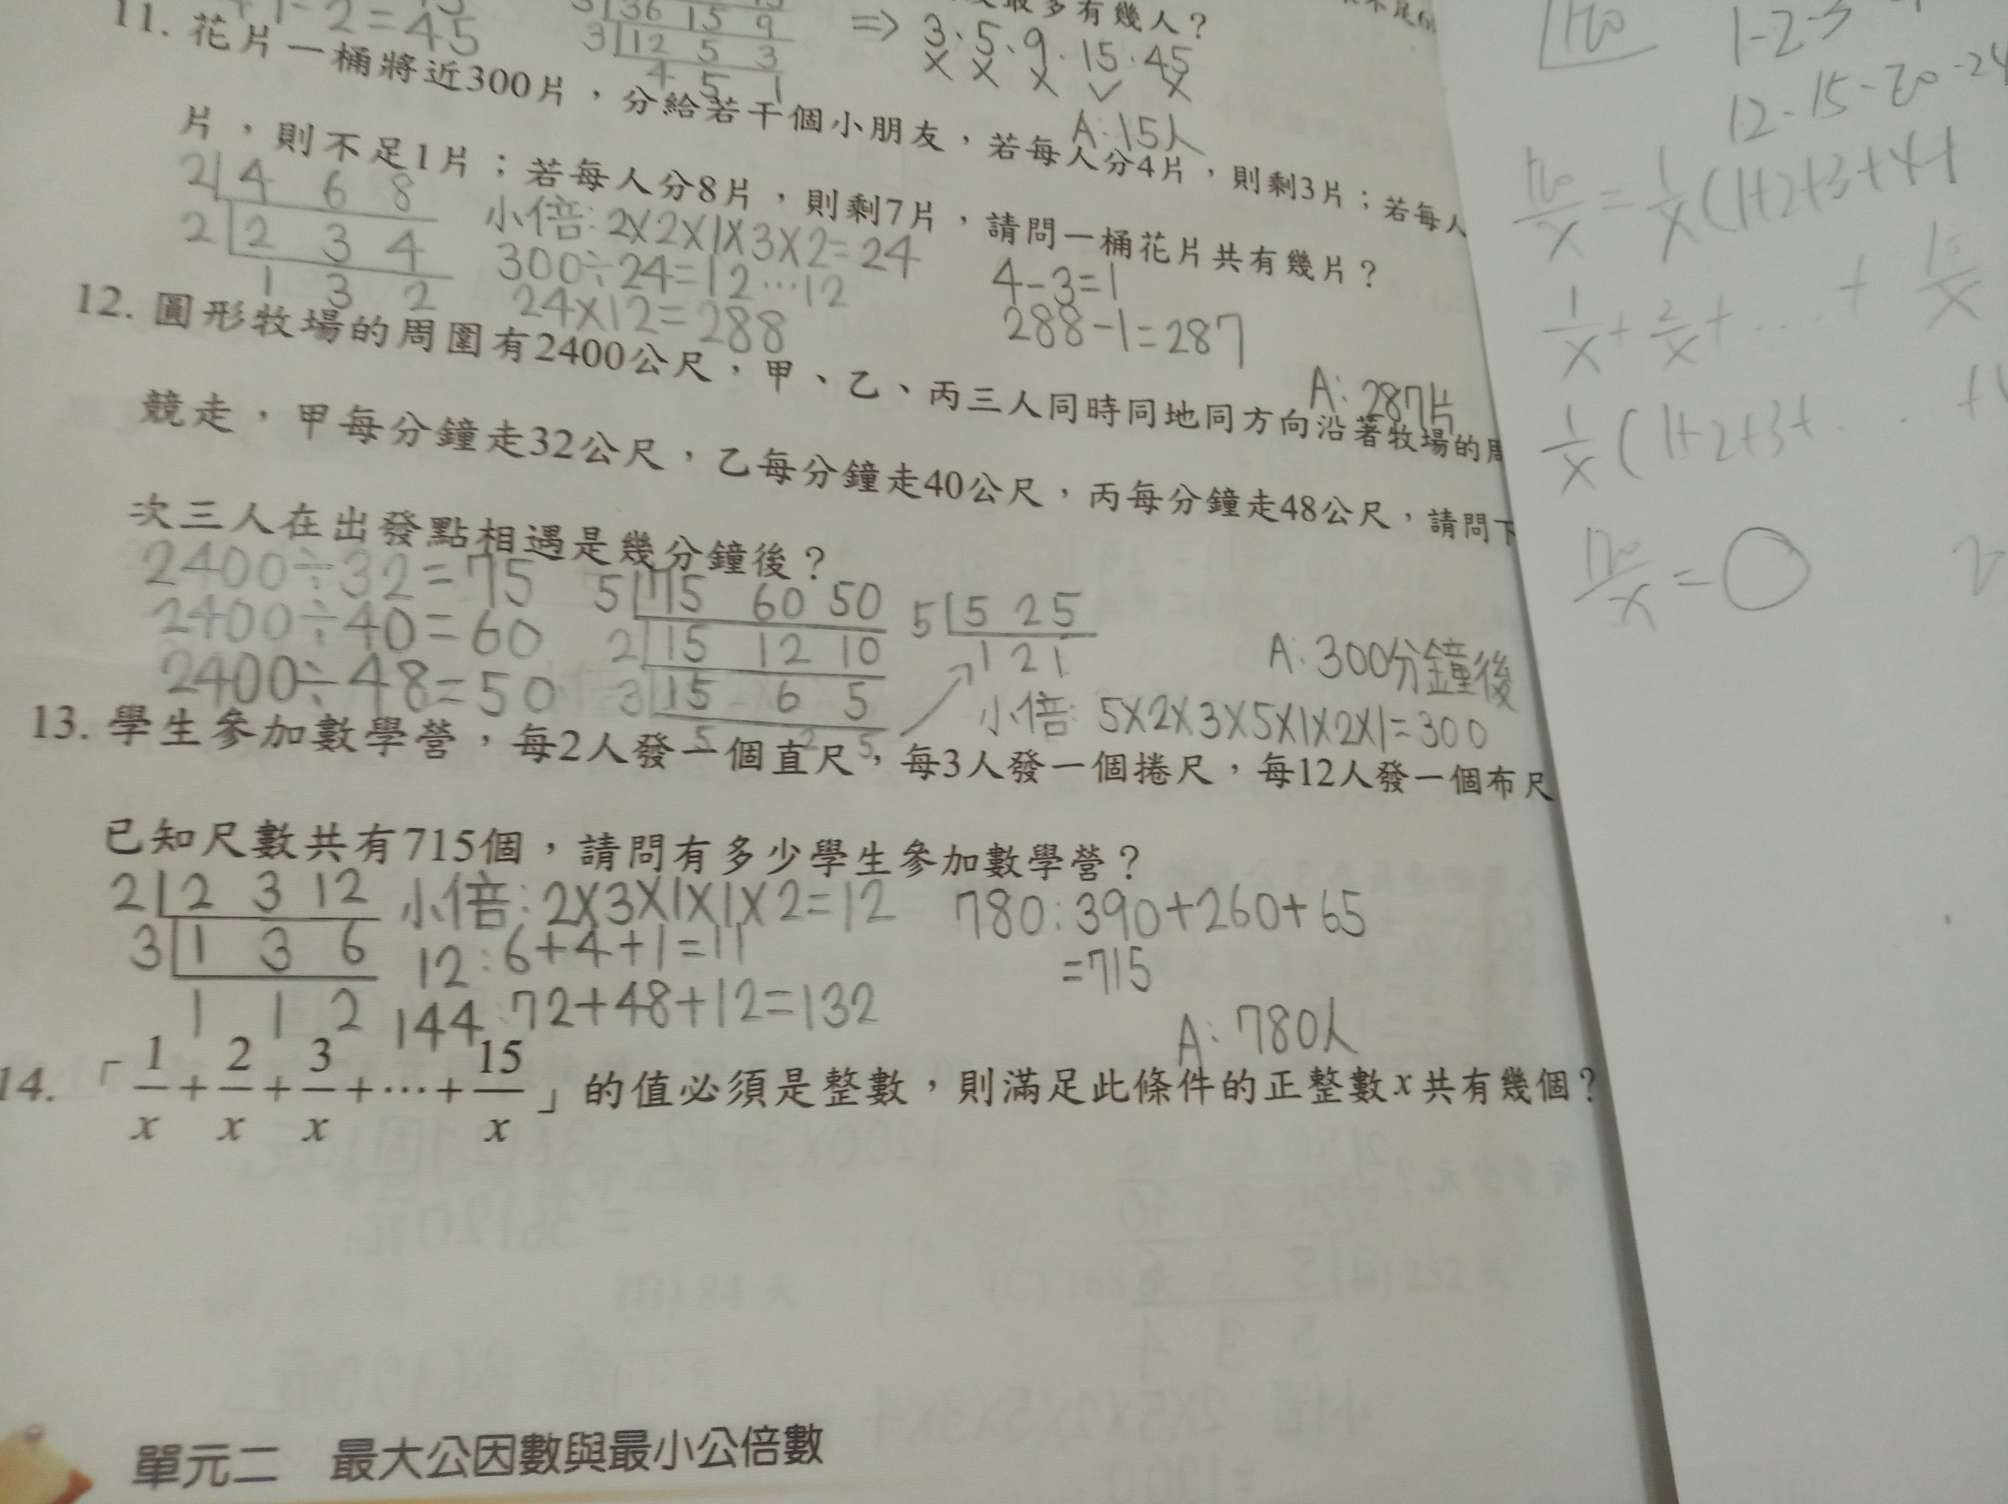 -2=45
3 36 15 9
3 12 5 3
4 5 1
=> 3、5、9、15、45
× × × ✓ ×
A:15人
最多有幾人？
11. 花片一桶將近300片，分給若干個小朋友，若每人分4片，則剩3片；若每人
片，則不足1片；若每人分8片，則剩7片，請問一桶花片共有幾片？
2 4 6 8
2 2 3 4
1 3 2
小倍:2×2×1×3×2=24
300÷24=12…12
24×12=288
4-3=1
288-1=287
A:287片
12. 圓形牧場的周圍有2400公尺，甲、乙、丙三人同時同地同方向沿著牧場的周
競走，甲每分鐘走32公尺，乙每分鐘走40公尺，丙每分鐘走48公尺，請問下
次三人在出發點相遇是幾分鐘後？
2400÷32=75
2400÷40=60
2400÷48=50
5 75 60 50
2 15 12 10
3 15 6 5
5 2 5
5 5 2 5
1 2 1
小倍:5×2×3×5×1×2×1=300
A:300分鐘後
13. 學生參加數學營，每2人發一個直尺，每3人發一個捲尺，每12人發一個布尺
已知尺數共有715個，請問有多少學生參加數學營？
2 2 3 12
3 1 3 6
1 1 2
小倍:2×3×1×1×2=12
12:6+4+1=11
144:72+48+12=132
780:390+260+65
=715
A:780人
14. 「1/x+2/x+3/x+…+15/x」的值必須是整數，則滿足此條件的正整數x共有幾個？
單元二 最大公因數與最小公倍數
120
1-2-3
12-15-20-24
120/x=1/x(1+2+3+4+
1/x+2/x+....+15/x
1/x(1+2+3+..
120/x=0